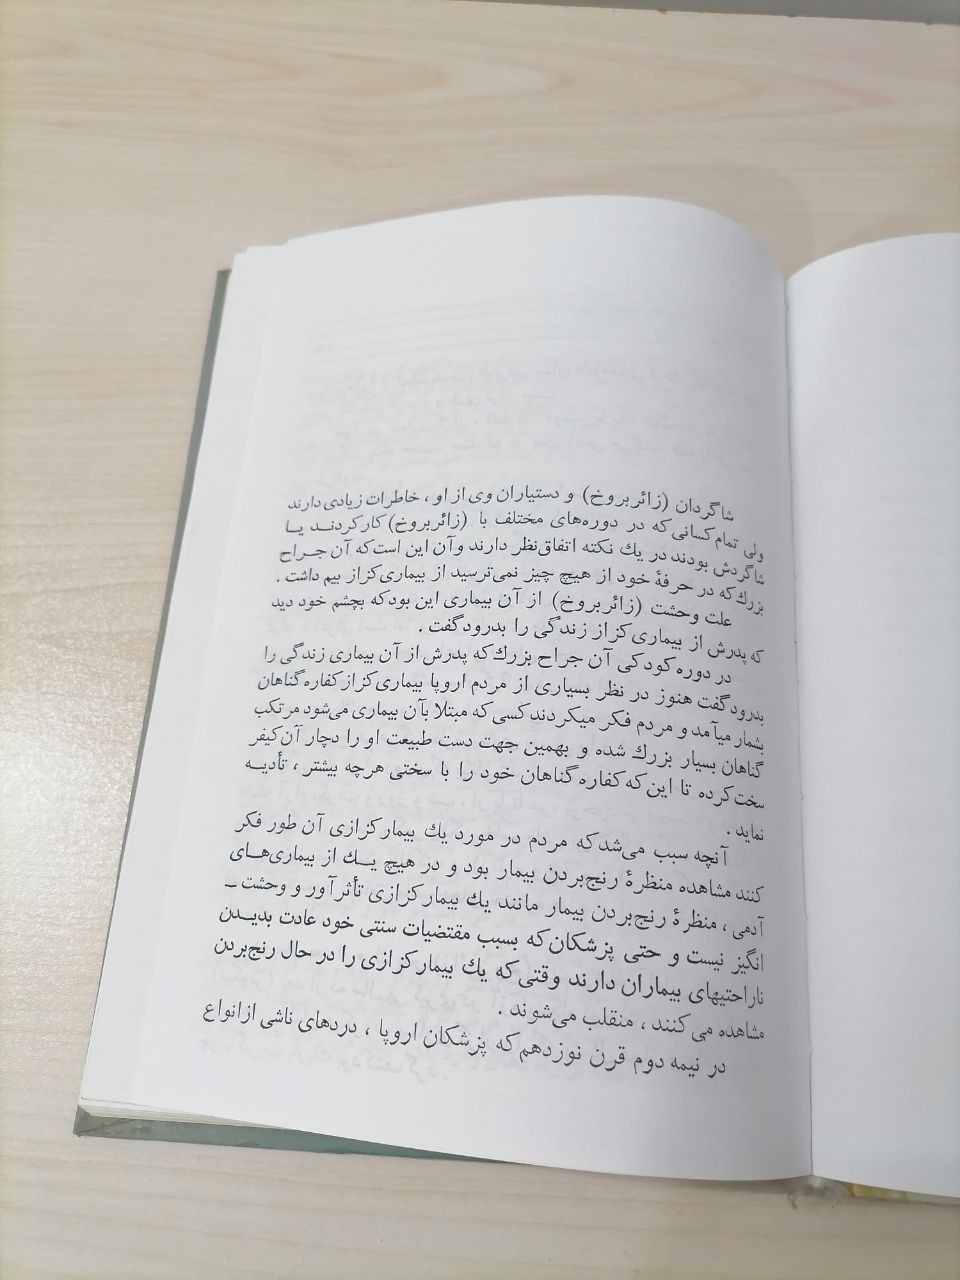 شاگردان (زائربروخ) و دستیاران وی از او ، خاطرات زیادی دارند
ولی تمام کسانی که در دوره‌های مختلف با (زائربروخ) کار کردند یا
شاگردش بودند در یك نکته اتفاق‌نظر دارند و آن این است که آن جراح
بزرك که در حرفهٔ خود از هیچ چیز نمی‌ترسید از بیماری کزاز بیم داشت .
علت وحشت (زائربروخ) از آن بیماری این بود که بچشم خود دید
که پدرش از بیماری کزاز زندگی را بدرود گفت .
در دوره کودکی آن جراح بزرك که پدرش از آن بیماری زندگی را
بدرود گفت هنوز در نظر بسیاری از مردم اروپا بیماری کزاز کفاره گناهان
بشمار میآمد و مردم فکر میکردند کسی که مبتلا بآن بیماری می‌شود مرتکب
گناهان بسیار بزرك شده و بهمین جهت دست طبیعت او را دچار آن کیفر
سخت کرده تا این که کفاره گناهان خود را با سختی هرچه بیشتر ، تأدیه
نماید .
آنچه سبب می‌شد که مردم در مورد یك بیمار کزازی آن طور فکر
کنند مشاهده منظرهٔ رنج بردن بیمار بود و در هیچ یك از بیماری‌های
آدمی ، منظرهٔ رنج بردن بیمار مانند یك بیمار کزازی تأثرآور و وحشت ــ
انگیز نیست و حتی پزشکان که بسبب مقتضیات سنتی خود عادت بدیدن
ناراحتیهای بیماران دارند وقتی که یك بیمار کزازی را در حال رنج بردن
مشاهده می‌کنند ، منقلب می‌شوند .
در نیمه دوم قرن نوزدهم که پزشکان اروپا ، دردهای ناشی از انواع